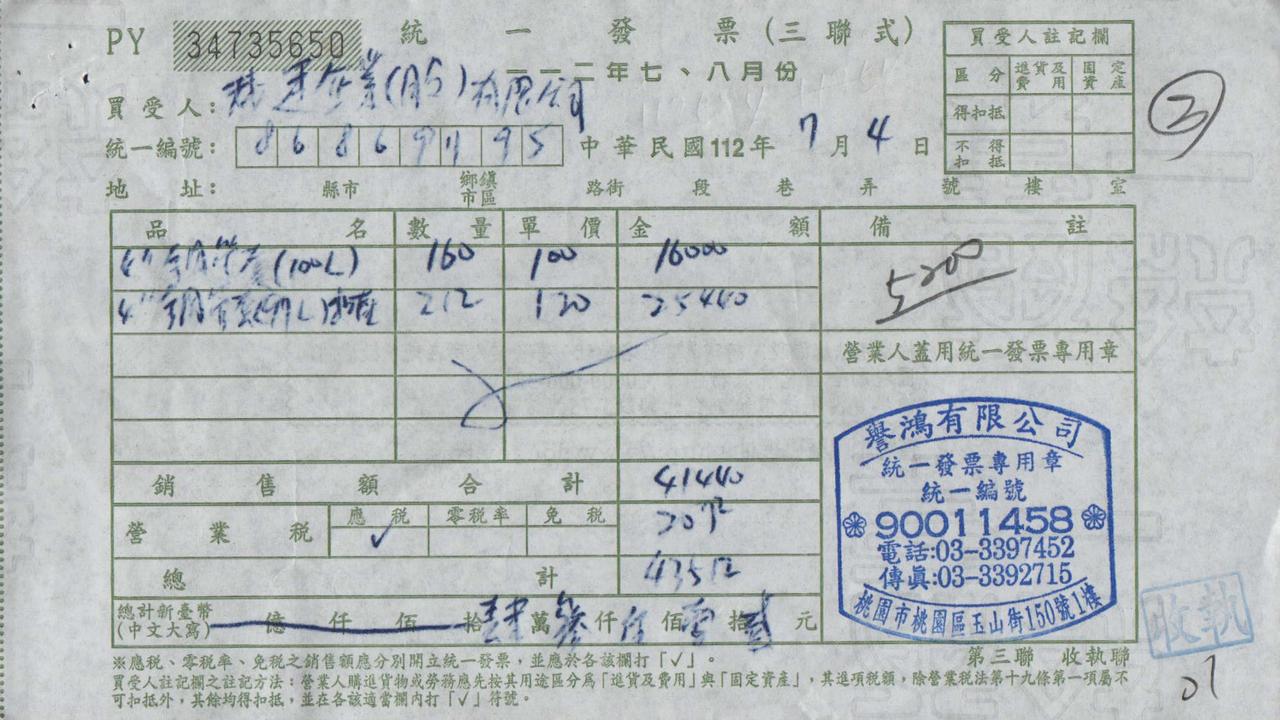 PY 34735650 統一發票(三聯式)
一一二年七、八月份
買受人註記欄
區分 進貨及費用 固定資產
得扣抵
不得扣抵
買受人: 企業(股)有限公司
統一編號: 中華民國112年7月4日
地址: 縣市 鄉鎮市區 路街 段 巷 弄 號 樓 室
品名 數量 單價 金額 備註
(100L) 160 100 16000 5200
212 120 25440
營業人蓋用統一發票專用章
銷售額合計 41440
營業稅 應稅 ✓ 零稅率 免稅 2072
總計 43512
總計新臺幣(中文大寫) 億 仟 佰 拾 肆 萬 參 仟 伍 佰 壹 拾 貳 元
譽鴻有限公司
統一發票專用章
統一編號
90011458
電話:03-3397452
傳真:03-3392715
桃園市桃園區玉山街150號1樓
收執
※應稅、零稅率、免稅之銷售額應分別開立統一發票,並應於各該欄打「✓」。
第三聯 收執聯
買受人註記欄之註記方法:營業人購進貨物或勞務應先按其用途區分為「進貨及費用」與「固定資產」,其進項稅額,除營業稅法第十九條第一項屬不
可扣抵外,其餘均得扣抵,並在各該適當欄內打「✓」符號。